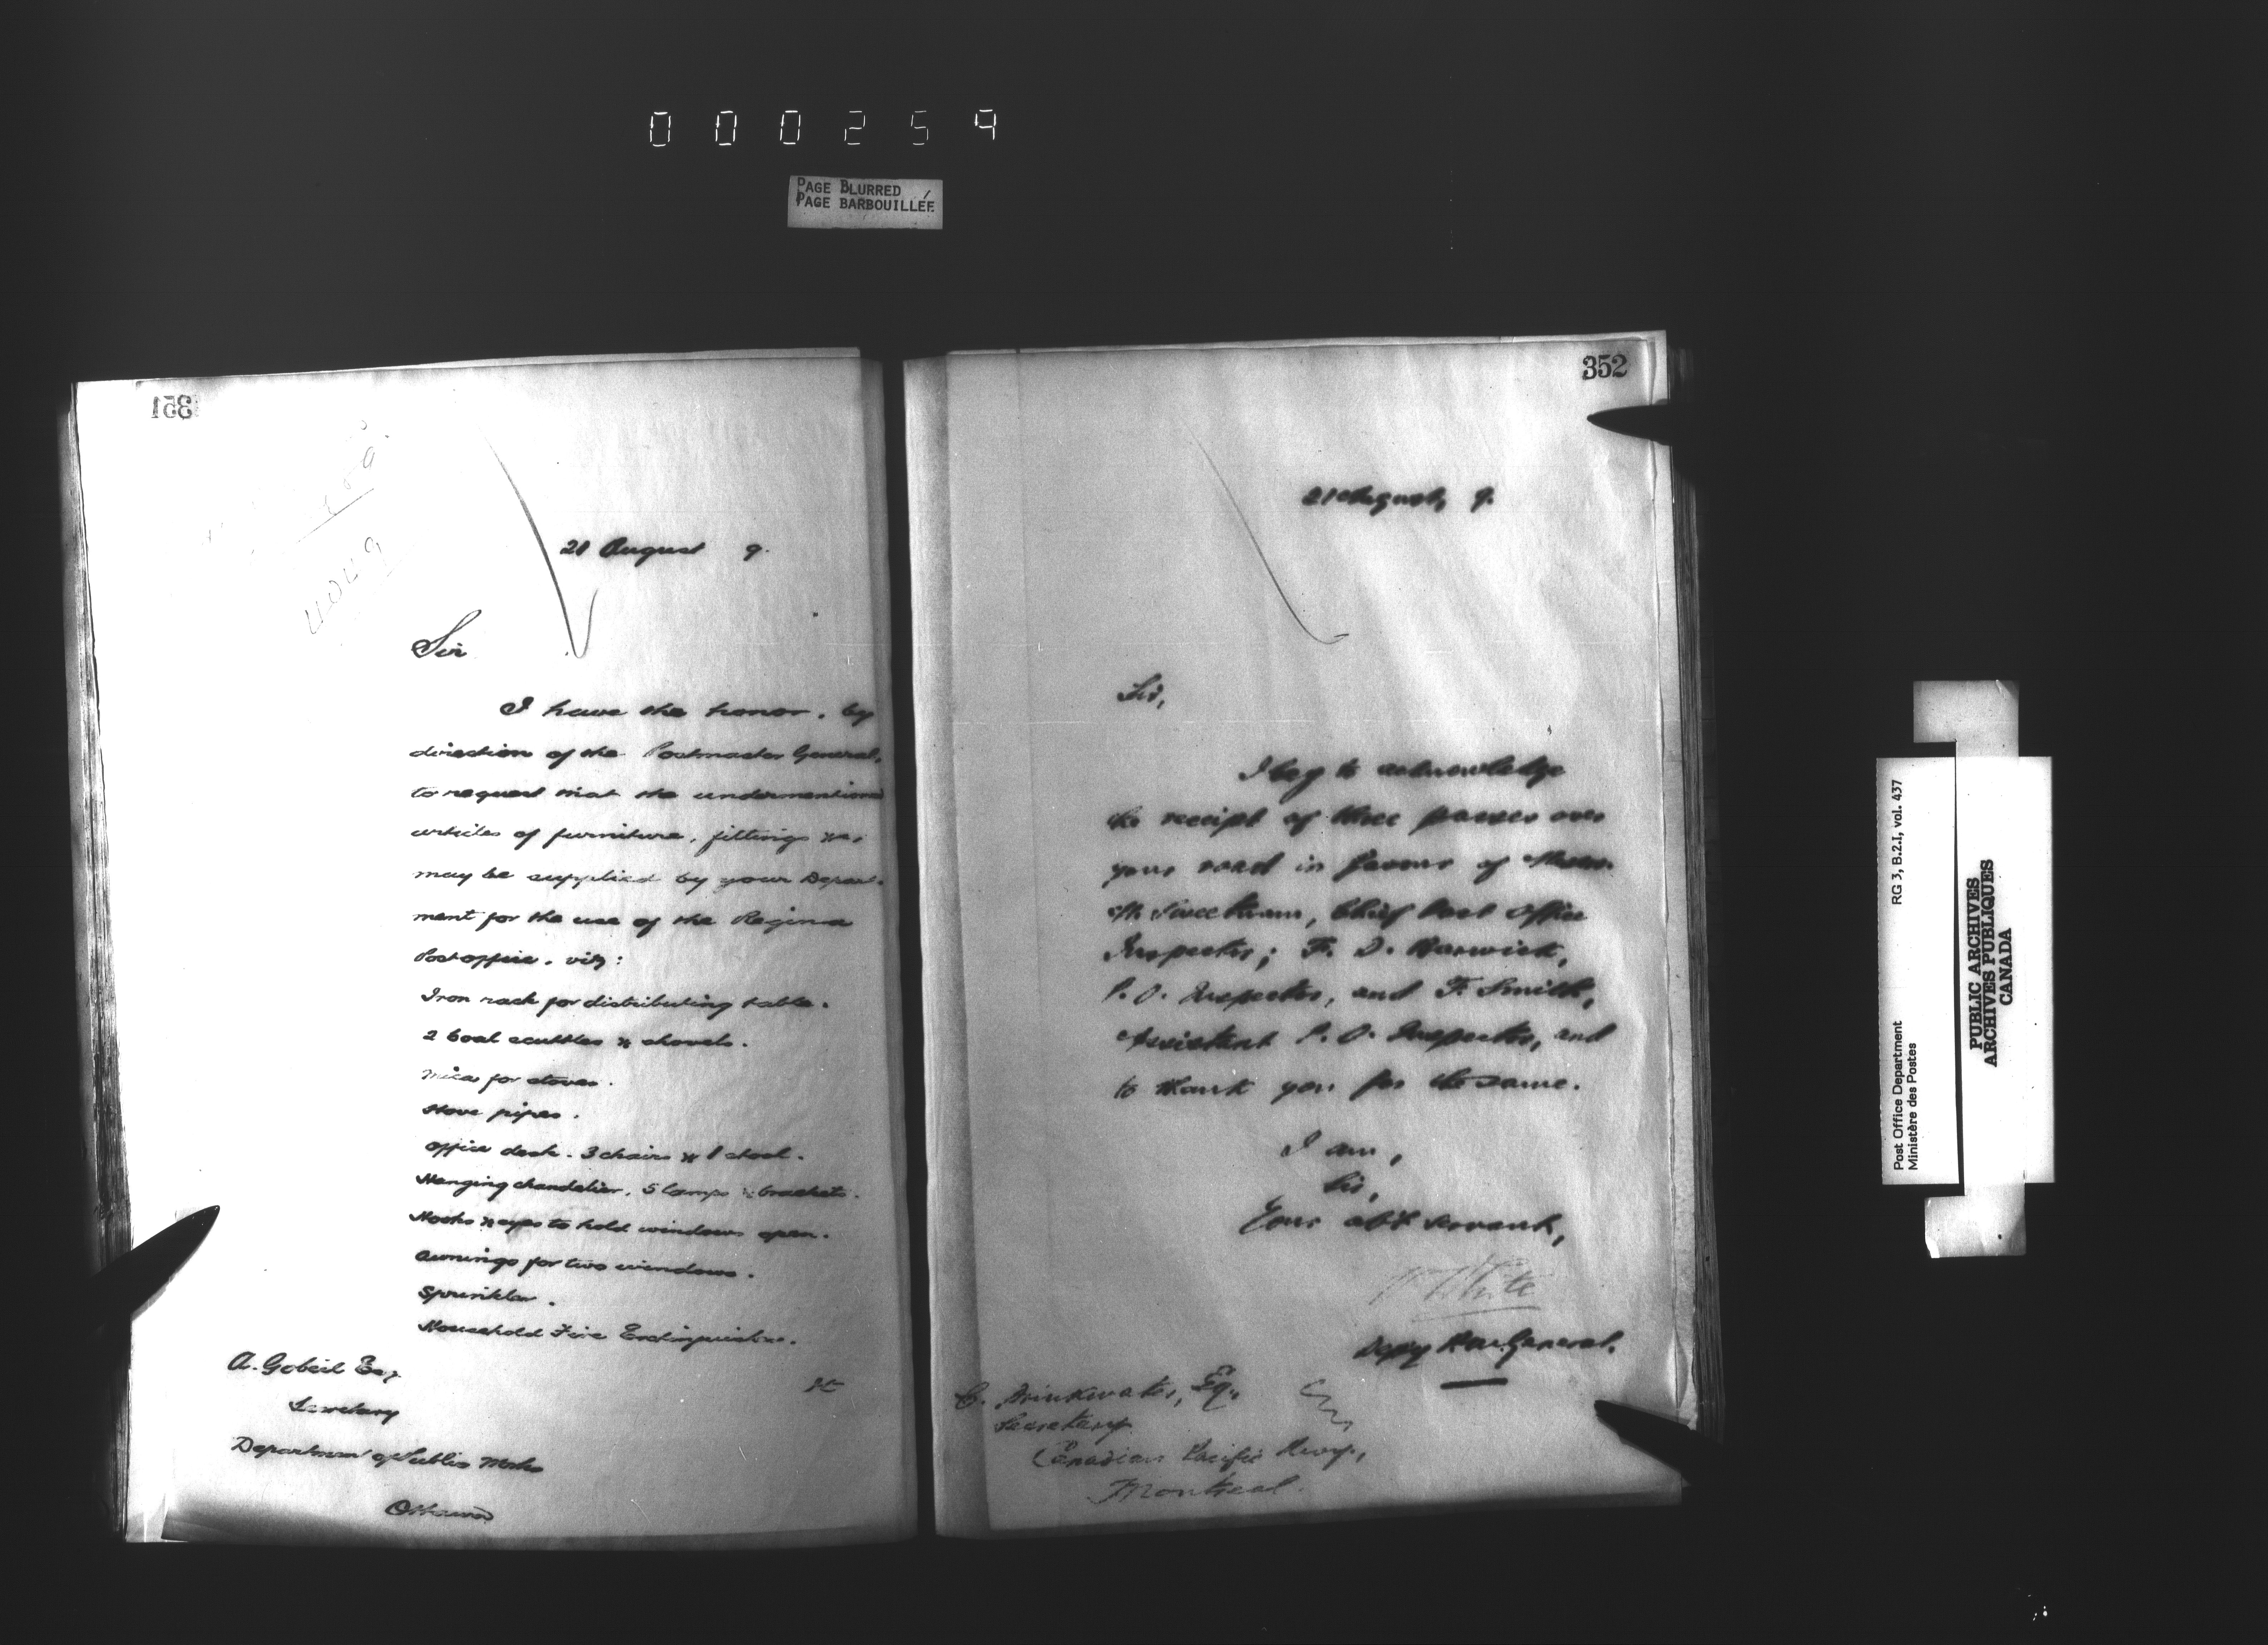 000259
PAGE BLURRED
PAGE BARBOUILLÉE
351
4049
21 August 9.
Sir
I have the honor, by
direction of the Postmaster General,
to request that the undermentioned
articles of furniture, fittings &c,
may be supplied by your Depart-
ment for the use of the Regina
Post office, viz:
Iron rack for distributing table.
2 Coal scuttles & shovels.
Mica for stoves.
Stove pipes.
Office desk. 3 chairs & 1 stool.
Hanging chandelier, 5 lamps & brackets.
Hooks & eyes to hold windows open.
Awnings for two windows.
Sprinkler.
Household Fire Extinguisher.
A. Gobeil Esq
Secretary
Department of Public Works
Ottawa
352
21 August, 9.
Sir,
I beg to acknowledge
the receipt of three passes over
your road in favour of Messrs.
M. Sweetnam, Chief Post Office
Inspector; F. D. Barwick,
P. O. Inspector, and F. Smith,
Assistant P. O. Inspector, and
to thank you for the same.
I am,
Sir,
Your obt servant,
W White
Depy P.M. General.
C. Drinkwater, Esq.,
Secretary
Canadian Pacific Rwy.,
Montreal.
Post Office Department RG 3, B.2.I, vol. 437
Ministère des Postes
PUBLIC ARCHIVES
ARCHIVES PUBLIQUES
CANADA